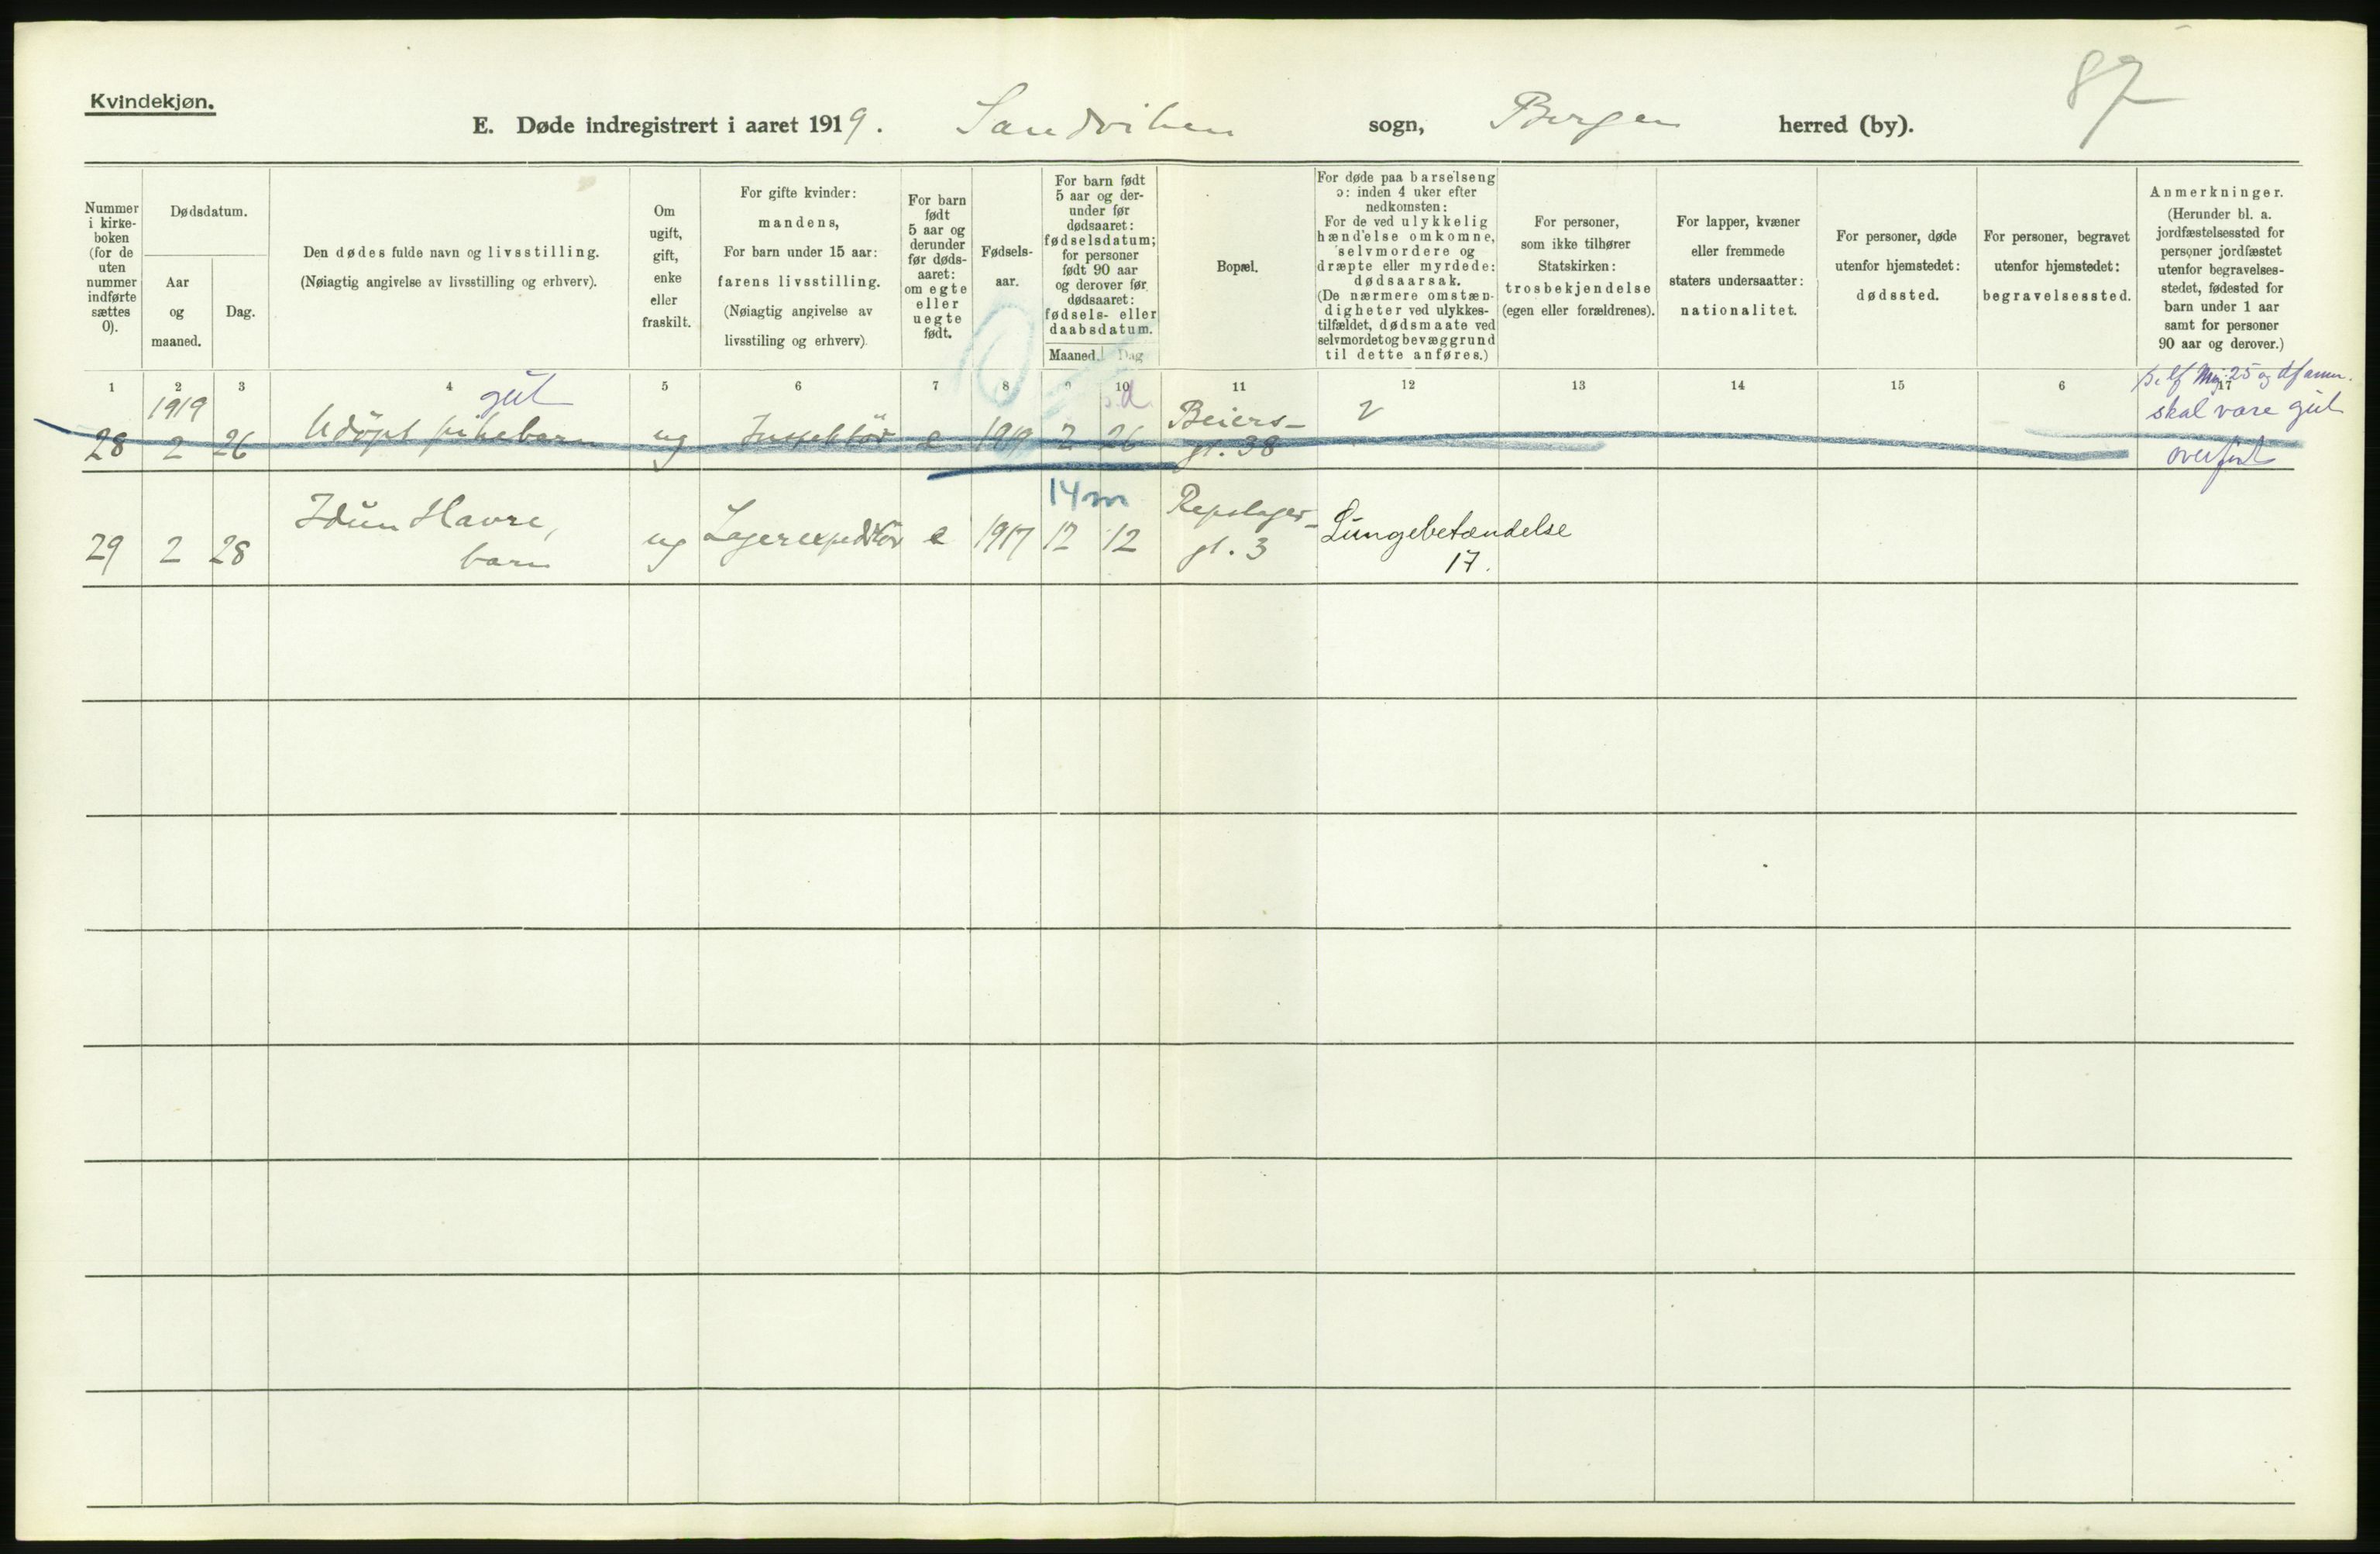 Kvindekjøn.
87
E. Døde indregistrert i aaret 1919. Sandviken sogn, Bergen herred (by).
Nummer
i kirke-
boken
(for de
uten
nummer
indførte
sættes
0).
Dødsdatum.
Aar
og
maaned.
Dag.
Den dødes fulde navn og livsstilling.
(Nøiagtig angivelse av livsstilling og erhverv).
Om
ugift,
gift,
enke
eller
fraskilt.
For gifte kvinder:
mandens,
For barn under 15 aar:
farens livsstilling.
(Nøiagtig angivelse av
livsstiling og erhverv).
For barn
født
5 aar og
derunder
før døds-
aaret:
om egte
eller
uegte
født.
Fødsels-
aar.
For barn født
5 aar og der-
under før
dødsaaret:
fødselsdatum;
for personer
født 90 aar
og derover før
dødsaaret:
fødsels- eller
daabsdatum.
Maaned. Dag
Bopæl.
For døde paa barselseng
ɔ: inden 4 uker efter
nedkomsten:
For de ved ulykkelig
hændelse omkomne,
selvmordere og
dræpte eller myrdede:
dødsaarsak.
(De nærmere omstæn-
digheter ved ulykkes-
tilfældet, dødsmaate ved
selvmordet og bevæggrund
til dette anføres.)
For personer,
som ikke tilhører
Statskirken:
trosbekjendelse
(egen eller forældrenes).
For lapper, kvæner
eller fremmede
staters undersaatter:
nationalitet.
For personer, døde
utenfor hjemstedet:
dødssted.
For personer, begravet
utenfor hjemstedet:
begravelsessted.
Anmerkninger.
(Herunder bl. a.
jordfæstelsessted for
personer jordfæstet
utenfor begravelses-
stedet, fødested for
barn under 1 aar
samt for personer
90 aar og derover.)
1 2 3 4 5 6 7 8 9 10 11 12 13 14 15 6 17
25 og
1919 gut Beiers- skal være gut
28 2 26 Udøpt pikebarn ug Inspektör e 1919 2 26 gt. 38
overført
14 m
Idun Havre, Repslager-
29 2 28 barn ug Lagerexpeditör e 1917 12 12 gt. 3 Lungebetændelse
17.